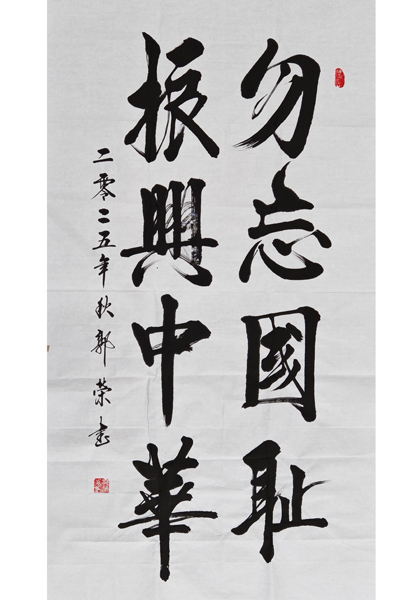 勿忘國耻
振興中華
二零二五年秋郭荣書